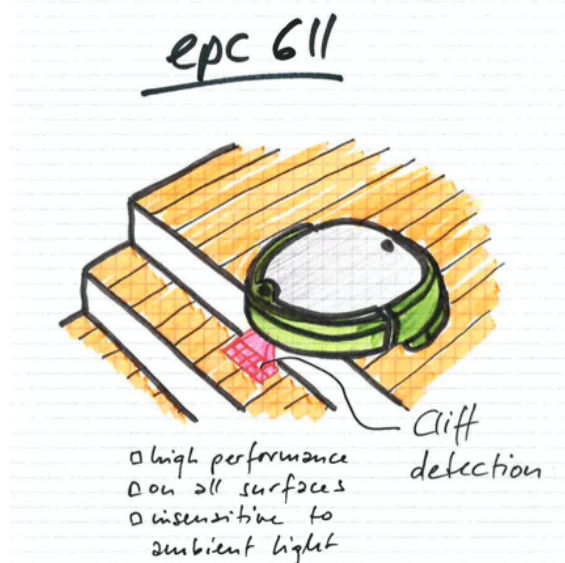 epc 611
Cliff
detection
high performance
on all surfaces
insensitive to
ambient light